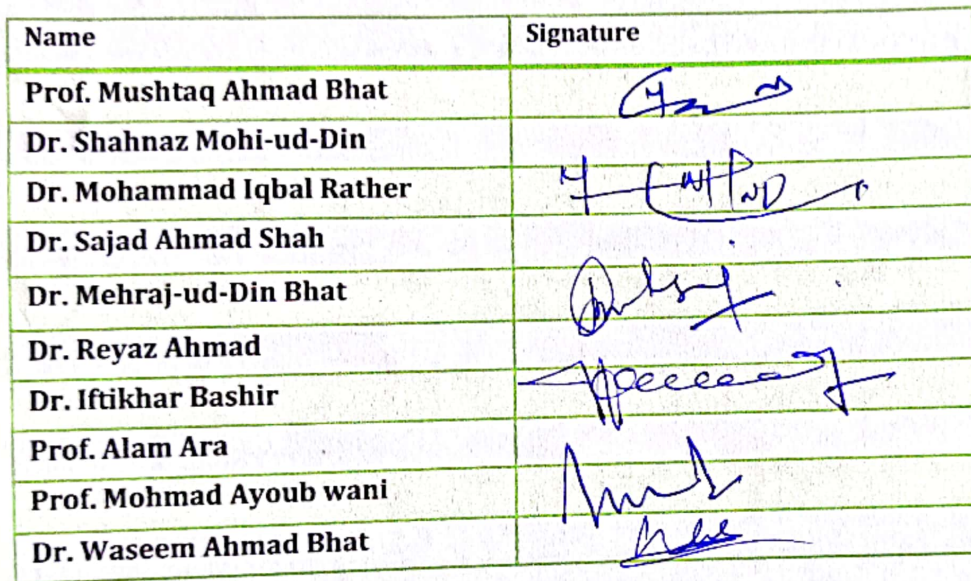 Name Signature
Prof. Mushtaq Ahmad Bhat
Dr. Shahnaz Mohi-ud-Din
Dr. Mohammad Iqbal Rather
Dr. Sajad Ahmad Shah
Dr. Mehraj-ud-Din Bhat
Dr. Reyaz Ahmad
Dr. Iftikhar Bashir
Prof. Alam Ara
Prof. Mohmad Ayoub wani
Dr. Waseem Ahmad Bhat